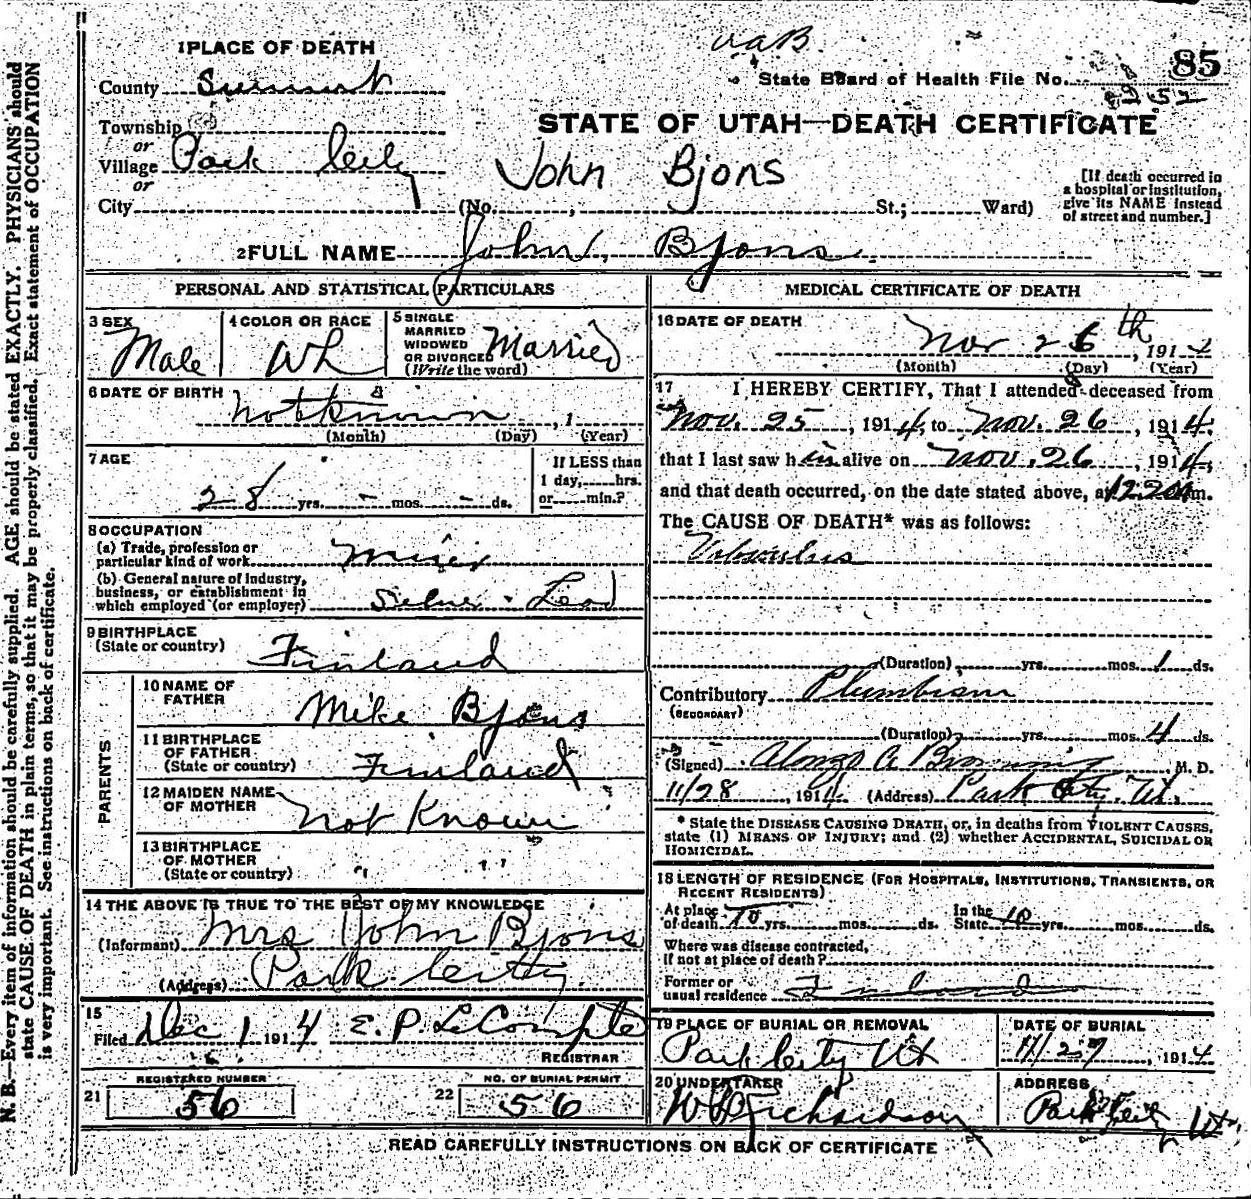 1 PLACE OF DEATH
County Summit
State Board of Health File No. 85
52
STATE OF UTAH—DEATH CERTIFICATE
Township
or
Village Park City
or
City (No. , St.; Ward)
John Bjons
[If death occurred in
a hospital or institution,
give its NAME instead
of street and number.]
2 FULL NAME John Bjons
PERSONAL AND STATISTICAL PARTICULARS
3 SEX
Male
4 COLOR OR RACE
Wh
5 SINGLE
MARRIED
WIDOWED
OR DIVORCED
(Write the word)
Married
6 DATE OF BIRTH
not known , 1
(Month) (Day) (Year)
7 AGE
28 yrs. - mos. - ds.
If LESS than
1 day, hrs.
or min.?
8 OCCUPATION
(a) Trade, profession or
particular kind of work Miner
(b) General nature of industry,
business, or establishment in
which employed (or employer) Silver - Lead
9 BIRTHPLACE
(State or country) Finland
PARENTS
10 NAME OF
FATHER Mike Bjons
11 BIRTHPLACE
OF FATHER
(State or country) Finland
12 MAIDEN NAME
OF MOTHER Not Known
13 BIRTHPLACE
OF MOTHER
(State or country) " "
14 THE ABOVE IS TRUE TO THE BEST OF MY KNOWLEDGE
(Informant) Mrs John Bjons
(Address) Park Citty
15
Filed Dec 1 1914 E. P. LeCompte
REGISTRAR
21 REGISTERED NUMBER
56
22 NO. OF BURIAL PERMIT
56
MEDICAL CERTIFICATE OF DEATH
16 DATE OF DEATH
Nov 26th, 1914
(Month) (Day) (Year)
17 I HEREBY CERTIFY, That I attended deceased from
Nov. 25, 1914, to Nov. 26, 1914,
that I last saw him alive on Nov. 26, 1914,
and that death occurred, on the date stated above, at 12.20 m.
The CAUSE OF DEATH* was as follows:
(Duration) yrs. mos. 1 ds.
Contributory Plumbism
(SECONDARY)
(Duration) yrs. mos. 4 ds.
(Signed) Alonzo A. M. D.
11/28, 1914 (Address) Park City. Ut.
* State the DISEASE CAUSING DEATH, or, in deaths from VIOLENT CAUSES,
state (1) MEANS OF INJURY; and (2) whether ACCIDENTAL, SUICIDAL OR
HOMICIDAL.
18 LENGTH OF RESIDENCE (FOR HOSPITALS, INSTITUTIONS, TRANSIENTS, OR
RECENT RESIDENTS)
At place
of death 10 yrs. mos. ds. In the
State 10 yrs. mos. ds.
Where was disease contracted,
if not at place of death?
Former or
usual residence Finland
19 PLACE OF BURIAL OR REMOVAL
Park City Ut
DATE OF BURIAL
11/27, 1914
20 UNDERTAKER
W Richardson
ADDRESS
Park City Ut.
READ CAREFULLY INSTRUCTIONS ON BACK OF CERTIFICATE
N. B.—Every item of information should be carefully supplied. AGE should be stated EXACTLY. PHYSICIANS should
state CAUSE OF DEATH in plain terms, so that it may be properly classified. Exact statement of OCCUPATION
is very important. See instructions on back of certificate.